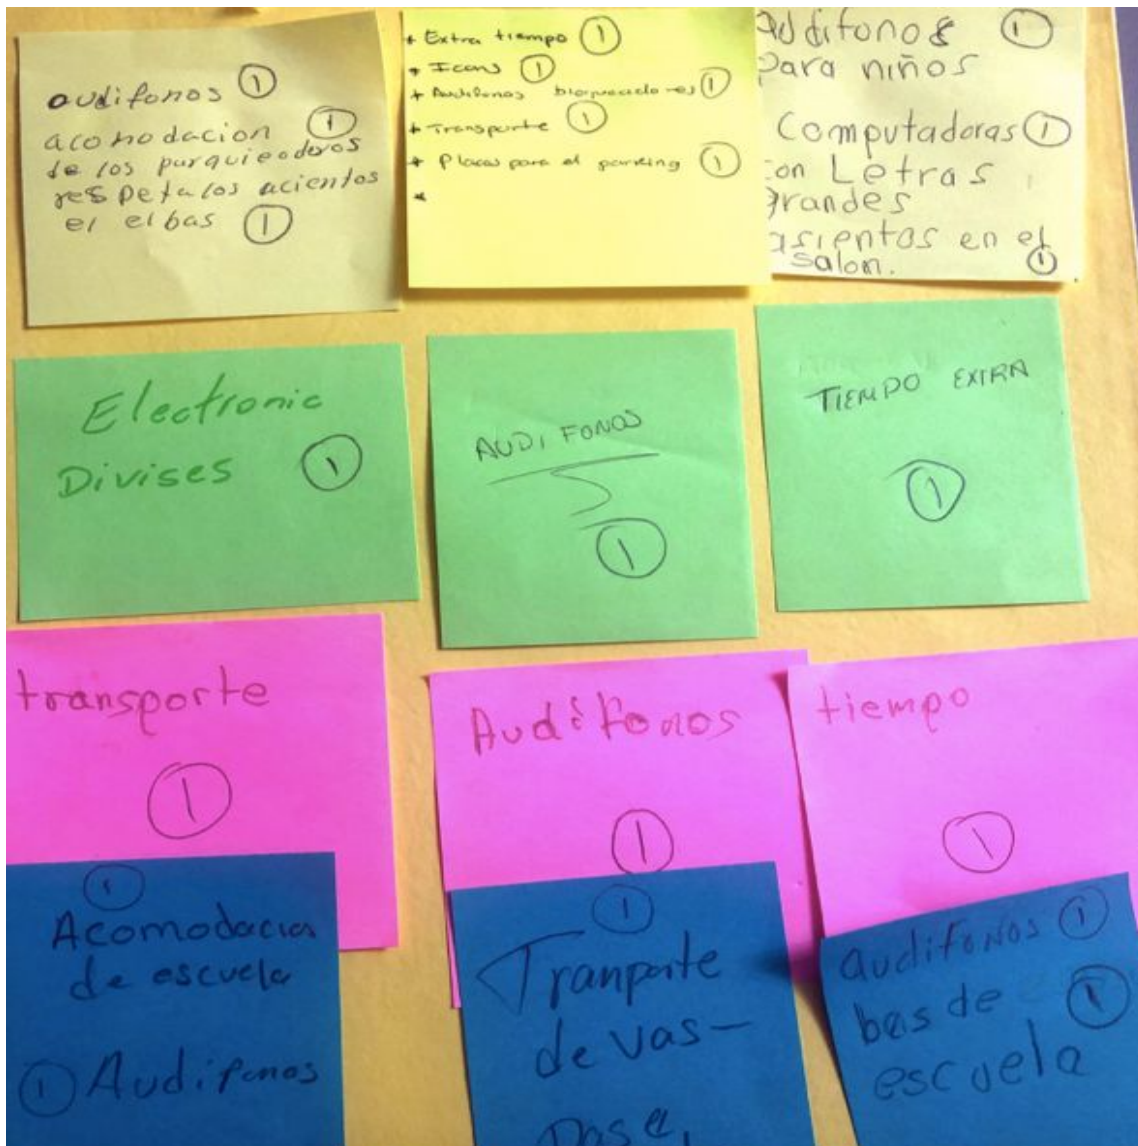 audifonos 1
acomodacion 1
de los purquieaderos
respeta los acientos
el elbas 1
+ Extra tiempo 1
+ Icons 1
+ Audifonos bloqueadores 1
+ Transporte 1
+ Placas para el parking 1
*
audifonos 1
para niños
Computadoras 1
con Letras
grandes
asientos en el
salon. 1
Electronic
Divises 1
AUDIFONOS
1
TIEMPO EXTRA
1
transporte
1
Audifonos
1
tiempo
1
1
Acomodacion
de escuela
1 Audifonos
1
Tranporte
de vas-
Pase,
audifonos 1
bas de 1
escuela